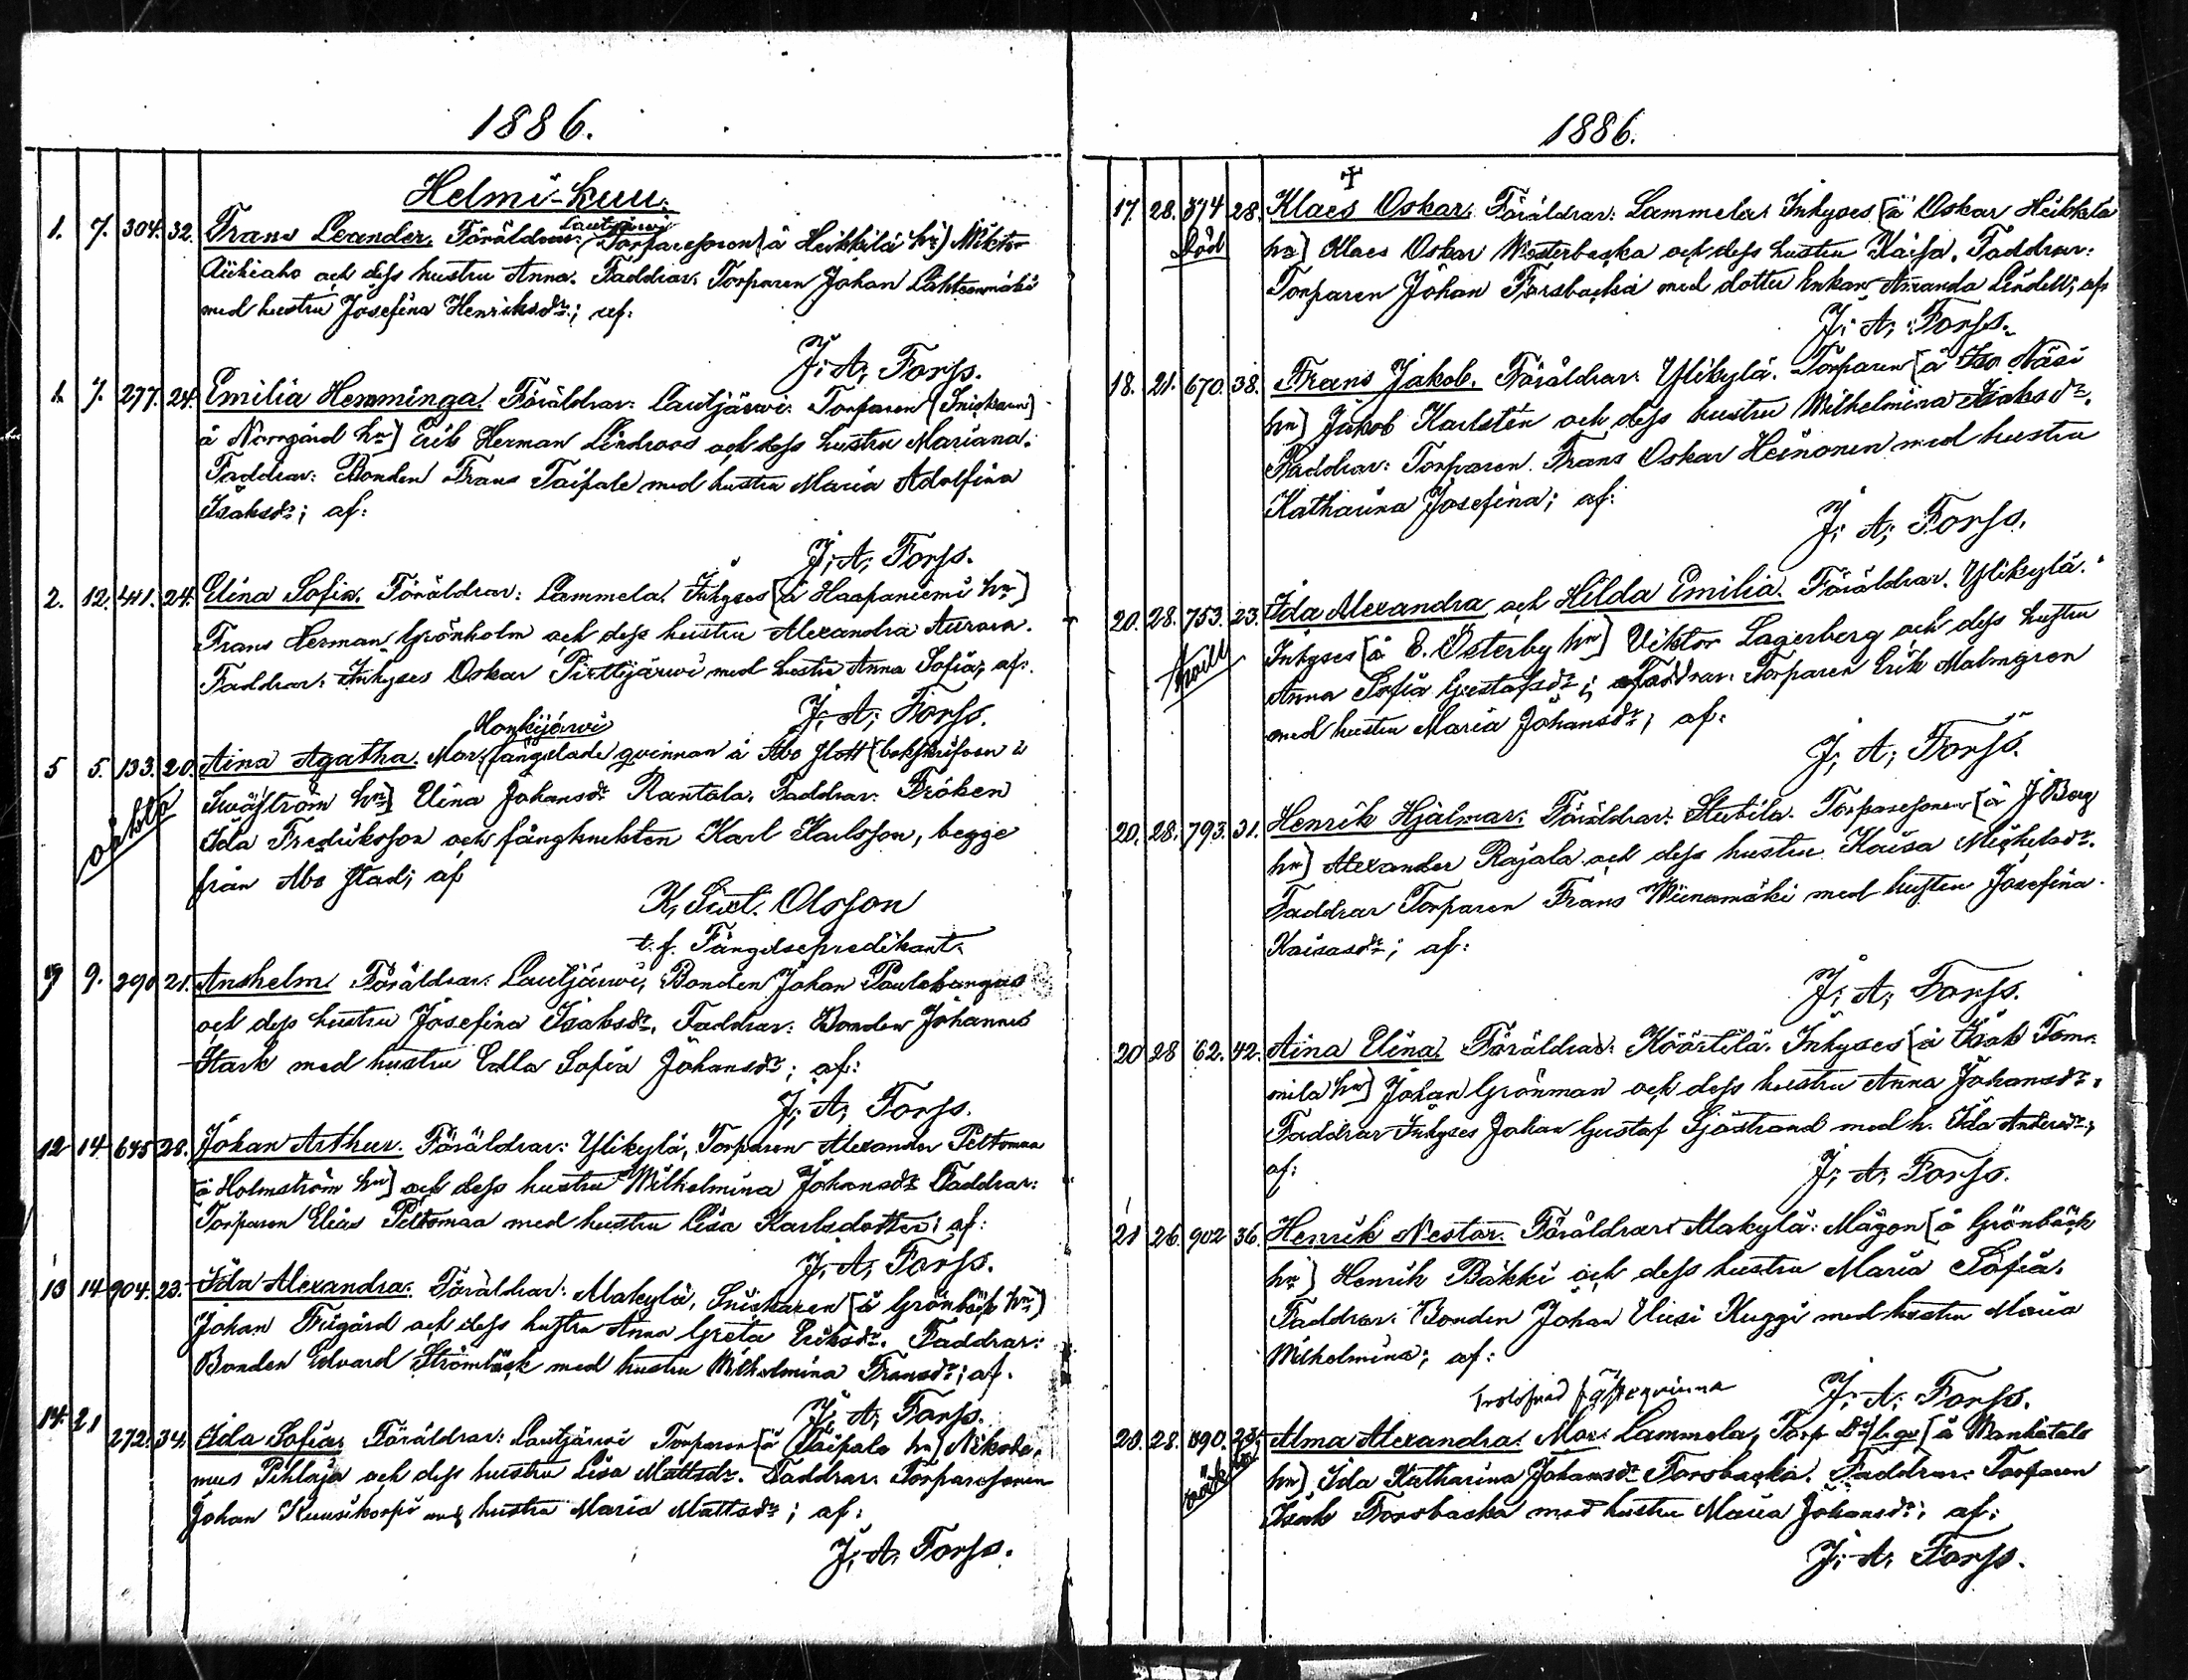 1886.
Helmi-kuu.
Lautjärwi
1. 7. 304. 32. Frans Leander. Föräldrar: Torparesonen [å Heikkilä hn] Wiktor
och dess hustru Anna. Faddrar: Torparen Johan Lähteenmäki
med hustru Josefina Henriksdr; af:
J. A. Forss.
1. 7. 277. 24. Emilia Hemminga. Föräldrar: Lautjärwi. Torparen (Snickaren)
å Norrgård hn] Erik Herman Lindroos och dess hustru Mariana.
Faddrar: Bonden Frans Taipale med hustru Maria Adolfina
Isaksdr; af:
J. A. Forss.
2. 12. 411. 24. Elina Sofia. Föräldrar: Lammela. Inhyses [å Haapaniemi hn]
Frans Herman Grönholm och dess hustru Alexandra Aurora.
Faddrar: Inhyses Oskar Pirttijärwi med hustru Anna Sofia, af:
J. A. Forss.
Honkijärwi
5 5. 133. 20. Aina Agatha. Mor: fängslade qvinnan å Åbo slott (bokskrifven i
oäkta
hn] Elina Johansdr Rantala. Faddrar: Fröken
Ida Fredriksson och fångknekten Karl Karlsson, begge
från Åbo stad; af
K. Sixt. Olsson
t. f. Fängelsepredikant.
9 9. 290 21. Anshelm. Föräldrar: Lautjärwi, Bonden Johan Paulakangas
och dess hustru Josefina Isaksdr. Faddrar: Bonden Johannes
Stark med hustru Ulla Sofia Johansdr; af:
J. A. Forss.
12 14. 645 28. Johan Arthur. Föräldrar: Ylikylä, Torparen Alexander Peltomaa
[å Holmström hn] och dess hustru Wilhelmina Johansdr Faddrar:
Torparen Elias Peltomaa med hustru Lisa Karlsdotter; af:
J. A. Forss.
13 14 904. 23. Ida Alexandra. Föräldrar: Makylä, Snickaren [å Grönbäck hn]
Johan Frigård och dess hustru Anna Greta Eriksdr. Faddrar:
Bonden Edvard Strömbäck med hustru Wilhelmina Fransdr; af.
J. A. Forss.
14. 21 272. 34. Ida Sofia. Föräldrar: Lautjärwi Torparen [å Taipale hn] Nikode-
mus Pihlaja och dess hustru Lisa Mattsdr. Faddrar: Torparesonen
Johan Kuusikorpi med hustru Maria Mattsdr; af:
J. A. Forss.
1886.
17. 28. 374 28. Klaes Oskar. Föräldrar: Lammela. Inhyses [å Oskar Heikkilä
Död
hn] Klaes Oskar Westerbacka och dess hustru Kaisa. Faddrar:
Torparen Johan Forsbacka med dotter Enkan Amanda Lindell; af.
J. A. Forss.
18. 21. 670. 38. Frans Jakob. Föräldrar: Ylikylä. Torparen [å Iso Näsi
hn] Jakob Karlstén och dess hustru Wilhelmina Isaksdr.
Faddrar: Torparen Frans Oskar Heinonen med hustru
Katharina Josefina; af:
J. A. Forss.
20. 28. 753. 23. Ida Alexandra och Hilda Emilia. Föräldrar: Ylikylä.
Inhyses [å E. Österby hn] Viktor Lagerberg och dess hustru
Anna Sofia Gustafsdr; Faddrar: Torparen Erik Malmgren
med hustru Maria Johansdr; af:
J. A. Forss.
20. 28. 793. 31. Henrik Hjalmar. Föräldrar: Stubila. Torparesonen [å J. Berg
hn] Alexander Rajala och dess hustru Kaisa Michelsdr.
Faddrar Torparen Frans Wiinamäki med hustru Josefina
Kaisasdr; af:
J. A. Forss.
20 28 62. 42. Aina Elina. Föräldrar: Köörtilä. Inhyses [å Isak Tom-
mila hn] Johan Grönman och dess hustru Anna Johansdr.
Faddrar Inhyses Johan Gustaf Sjöstrand med h. Ida Andersdr;
af:
J. A. Forss.
21 26. 902 36. Henrik Nestor. Föräldrar: Makylä: Mågen [å Grönbäck
hn] Henrik Bäkki och dess hustru Maria Sofia.
Faddrar: Bonden Johan Uusi Kuggi med hustru Maria
Wilhelmina; af:
J. A. Forss.
Trolofvad fästeqvinna
20. 28. 890. 23. Alma Alexandra. Mor: Lammela, Torp. [å Wanhatalo
hn] Ida Katharina Johansdr Forsbacka. Faddrar: Torparen
Isak Forsbacka med hustru Maria Johansdr; af:
J. A. Forss.